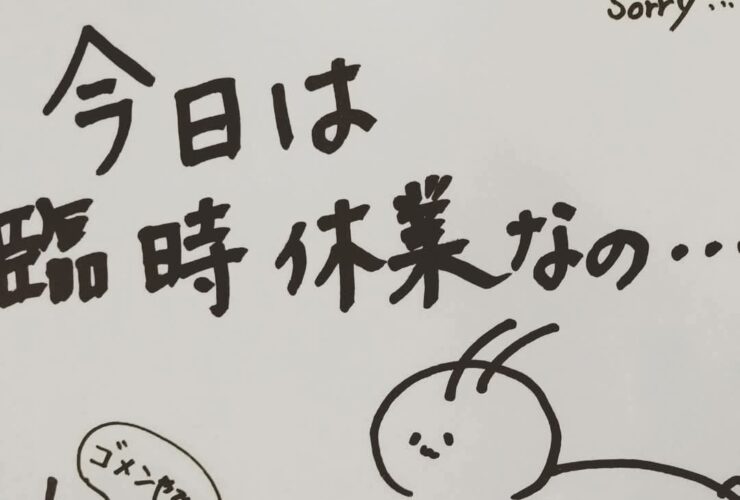 Sorry...
今日は
臨時休業なの・・・
ゴメンや